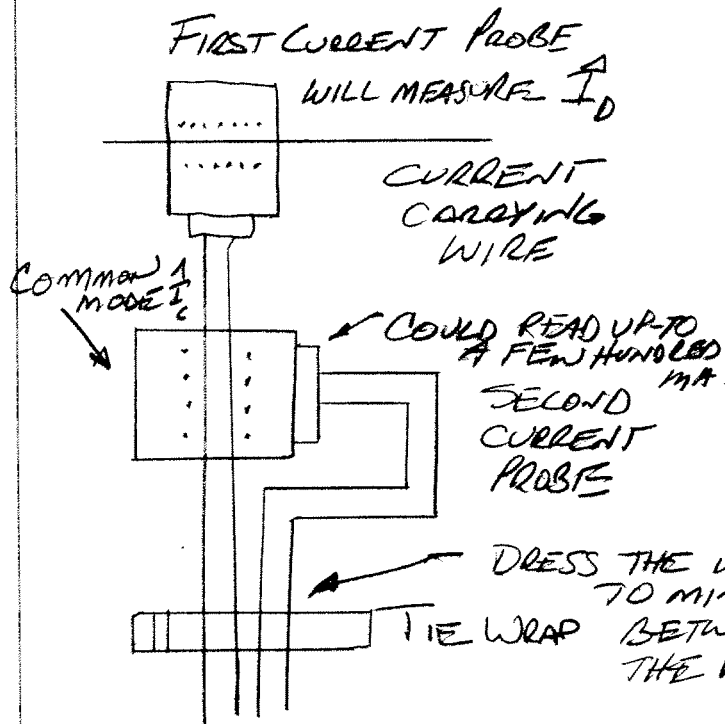 FIRST CURRENT PROBE
WILL MEASURE I_D
CURRENT
CARRYING
WIRE
COMMON
MODE I_C
COULD READ UP-TO
A FEW HUNDRED
MA
SECOND
CURRENT
PROBE
DRESS THE
TO
TIE WRAP
THE